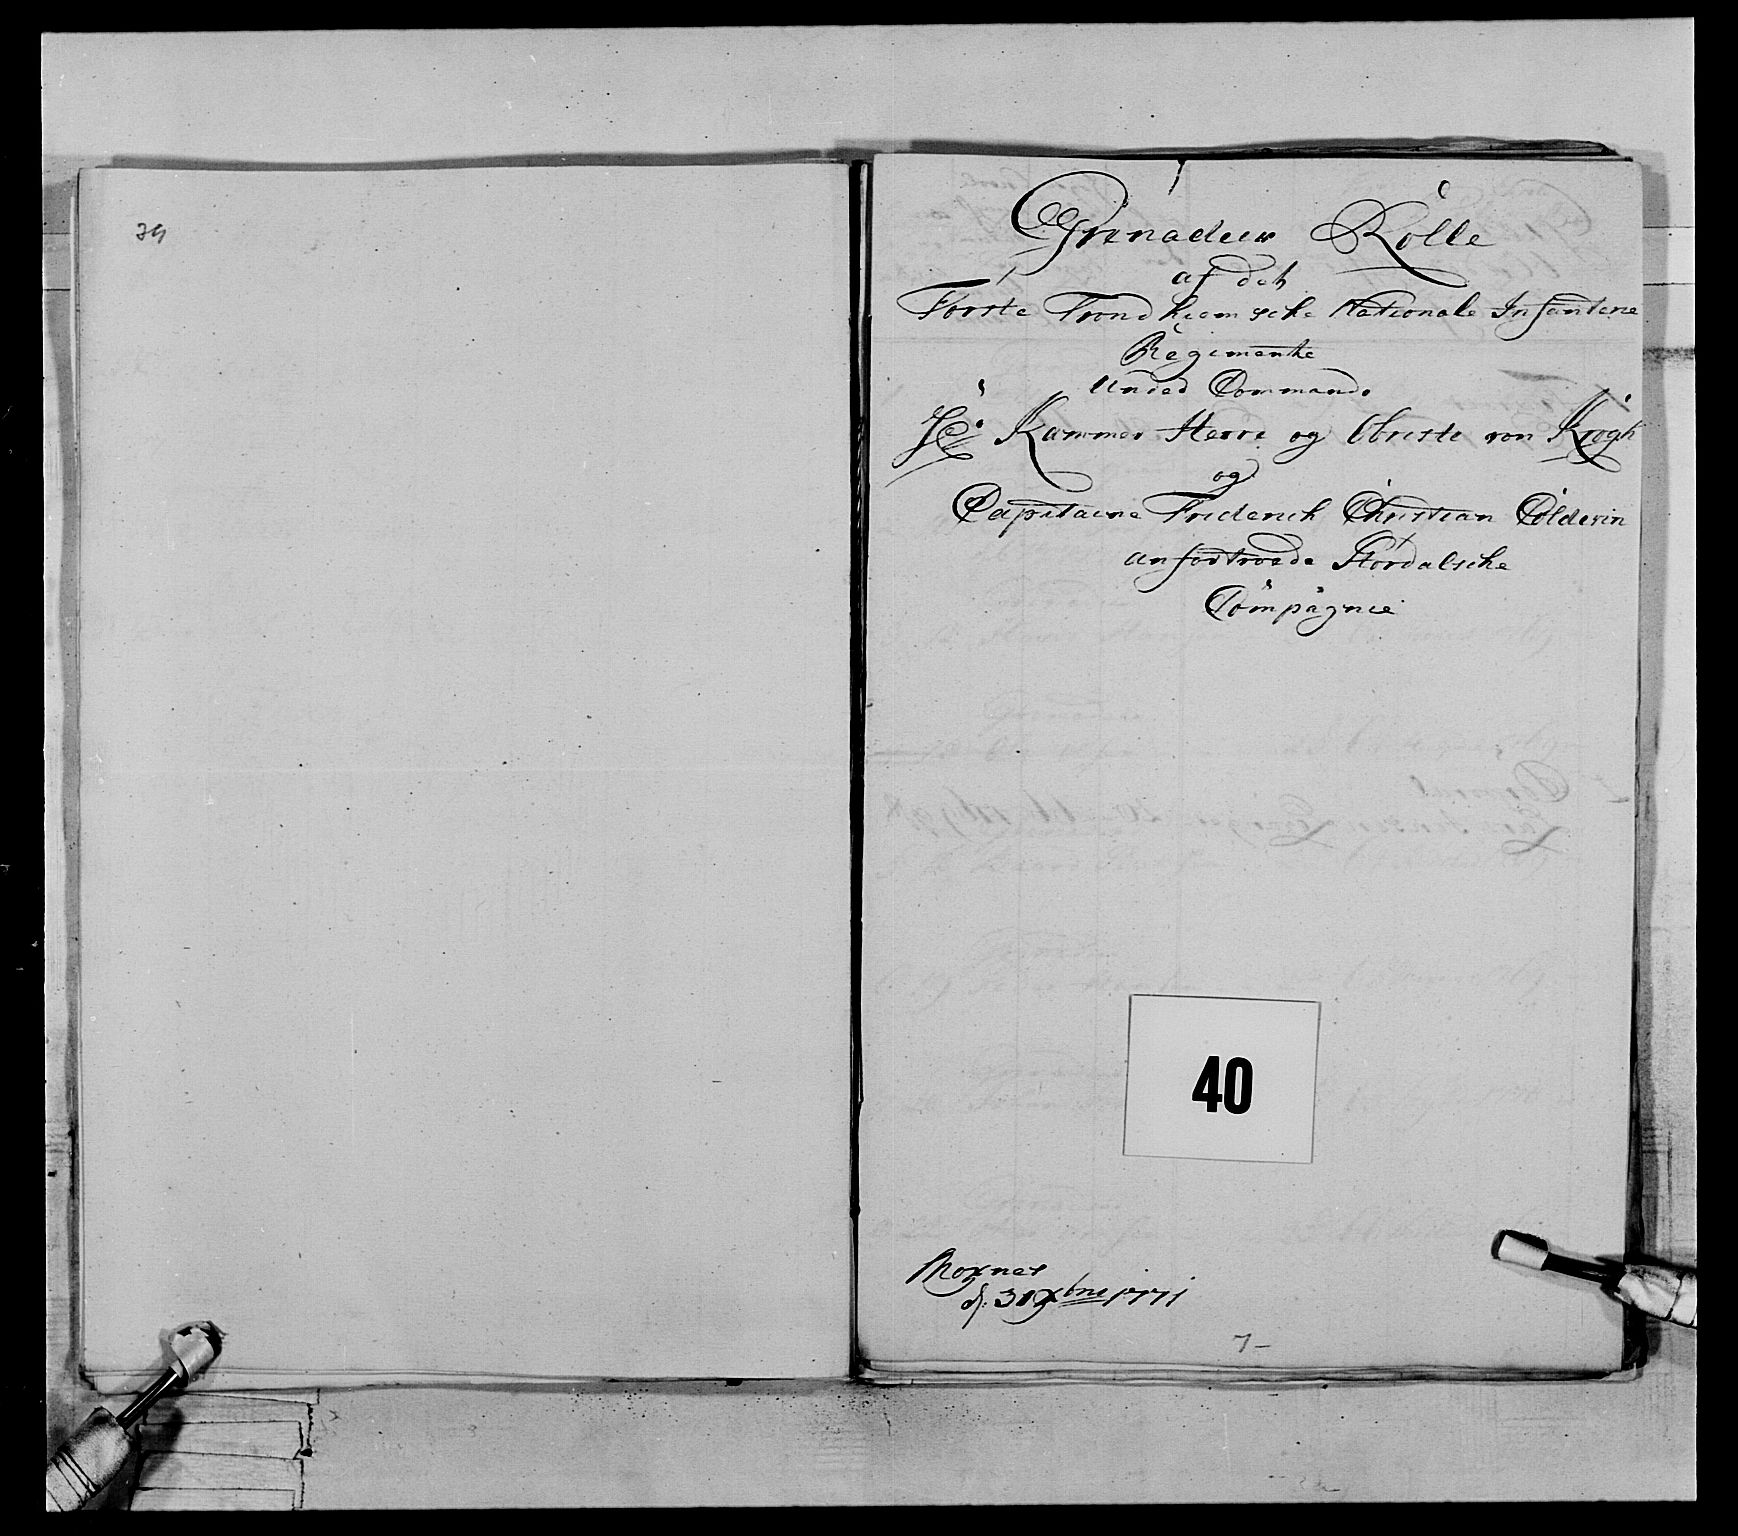 39
Grenadeer Rolle
af det
Förste Trondhiemsche Nationale Infanterie
Regimente
Under Commando
Hr. Kammer Herre og Obriste von Krogh
og
Capitaine Friderich Christian Coldevin
anfortroede Stordalsche
Compagnie
40
Moxnes
d. 31 Xbris 1771
7-